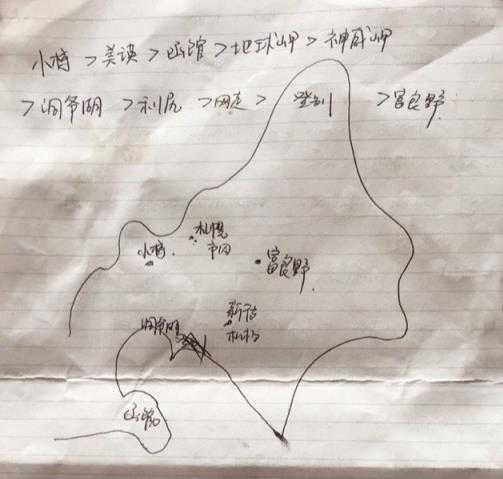 小樽 > 美瑛 > 函馆 > 地球岬 > 神威岬
> 洞爷湖 > 利尻 > 网走 > 登别 > 富良野
札幌
市内
小樽
富良野
新千
洞爷湖
机场
函馆